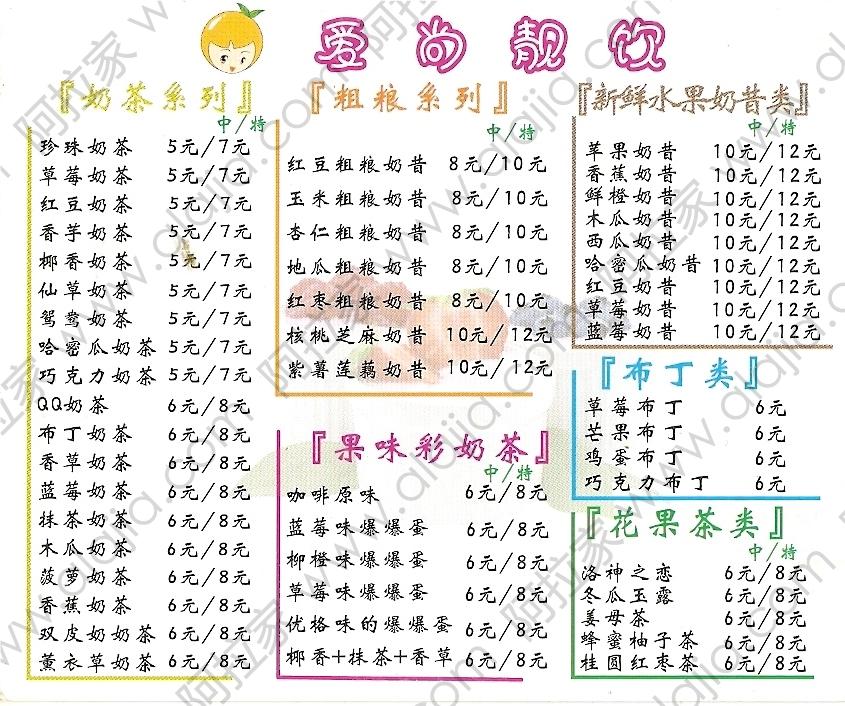 爱尚靓饮
『奶茶系列』
中/特
珍珠奶茶 5元/7元
草莓奶茶 5元/7元
红豆奶茶 5元/7元
香芋奶茶 5元/7元
椰香奶茶 5元/7元
仙草奶茶 5元/7元
鸳鸯奶茶 5元/7元
哈密瓜奶茶 5元/7元
巧克力奶茶 5元/7元
QQ奶茶 6元/8元
布丁奶茶 6元/8元
香草奶茶 6元/8元
蓝莓奶茶 6元/8元
抹茶奶茶 6元/8元
木瓜奶茶 6元/8元
菠萝奶茶 6元/8元
香蕉奶茶 6元/8元
双皮奶奶茶 6元/8元
薰衣草奶茶 6元/8元
『粗粮系列』
中/特
红豆粗粮奶昔 8元/10元
玉米粗粮奶昔 8元/10元
杏仁粗粮奶昔 8元/10元
地瓜粗粮奶昔 8元/10元
红枣粗粮奶昔 8元/10元
核桃芝麻奶昔 10元/12元
紫薯莲藕奶昔 10元/12元
『果味彩奶茶』
中/特
咖啡原味 6元/8元
蓝莓味爆爆蛋 6元/8元
柳橙味爆爆蛋 6元/8元
草莓味爆爆蛋 6元/8元
优格味的爆爆蛋 6元/8元
椰香+抹茶+香草 6元/8元
『新鲜水果奶昔类』
中/特
苹果奶昔 10元/12元
香蕉奶昔 10元/12元
鲜橙奶昔 10元/12元
木瓜奶昔 10元/12元
西瓜奶昔 10元/12元
哈密瓜奶昔 10元/12元
红豆奶昔 10元/12元
草莓奶昔 10元/12元
蓝莓奶昔 10元/12元
『布丁类』
草莓布丁 6元
芒果布丁 6元
鸡蛋布丁 6元
巧克力布丁 6元
『花果茶类』
中/特
洛神之恋 6元/8元
冬瓜玉露 6元/8元
姜母茶 6元/8元
蜂蜜柚子茶 6元/8元
桂圆红枣茶 6元/8元
阿拉家 www.alajia.com